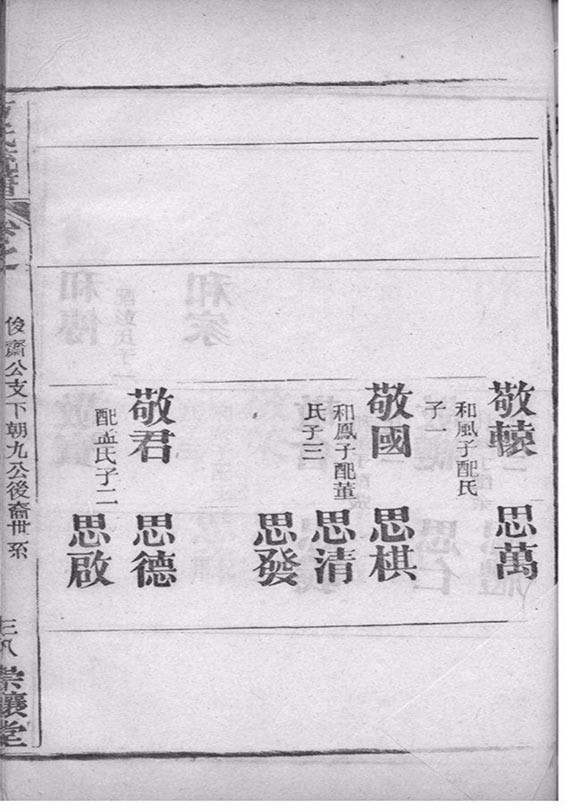 敬轅
和風子配氏
子一
思萬
敬國
和鳳子配董
氏子三
思棋
思清
思發
敬君
配孟氏子二
思德
思啟
俊齋公支下朝九公後裔世系
三八
崇讓堂